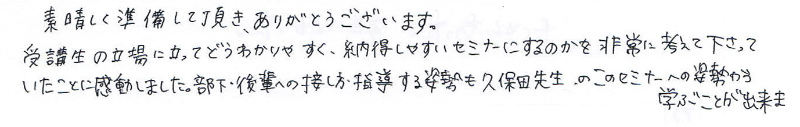 素晴しく準備して頂き、ありがとうございます。
受講生の立場に立ってどうわかりやすく、納得しやすいセミナーにするのかを非常に考えて下さって
いたことに感動しました。部下・後輩への接し方・指導する姿勢も久保田先生のこのセミナーへの姿勢から
学ぶことが出来ま